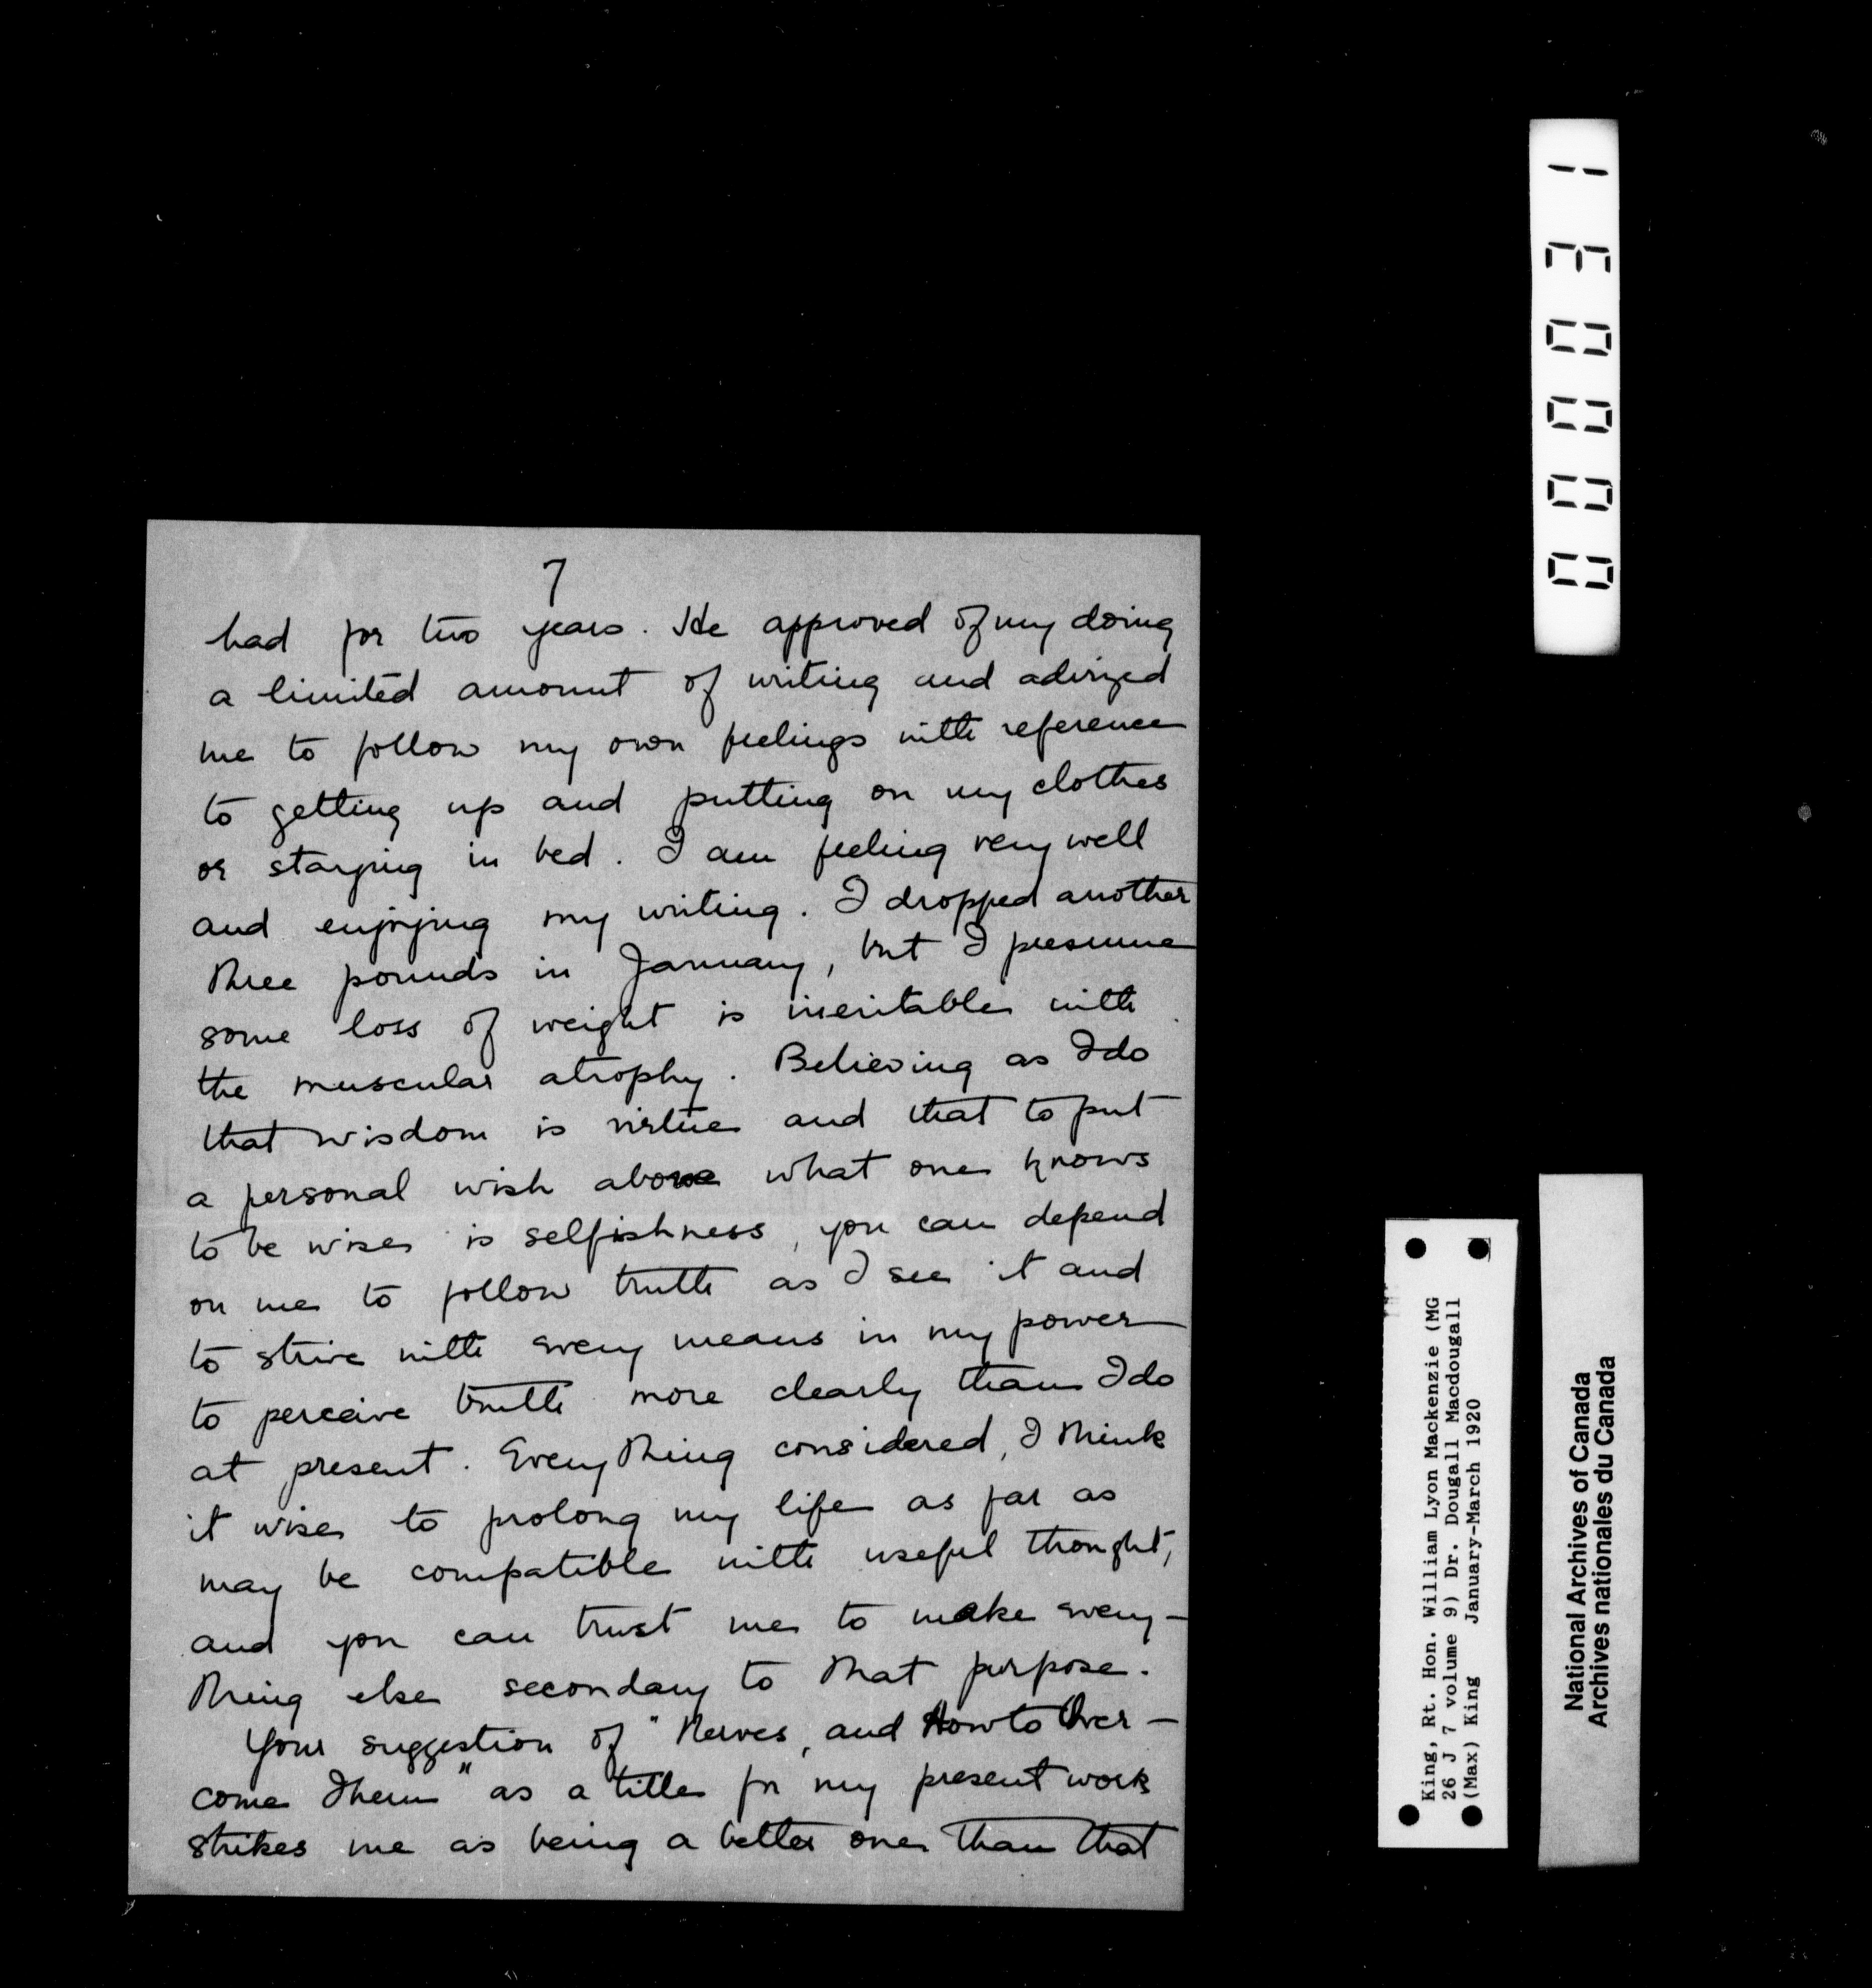 7
had for two years. He approved of my doing
a limited amount of writing and advized
me to follow my own feelings with reference
to getting up and putting on my clothes
or staying in bed. I am feeling very well
and enjoying my writing. I dropped another
three pounds in January, but I presume
some loss of weight is inevitable with
the muscular atrophy. Believing as I do
that wisdom is virtue and that to put
a personal wish above what one knows
to be wise is selfishness, you can depend
on me to follow truth as I see it and
to strive with every means in my power
to perceive truth more clearly than I do
at present. Everything considered, I think
it wise to prolong my life as far as
may be compatible with useful thought,
and you can trust me to make every-
thing else secondary to that purpose.
Your suggestion of "Nerves, and How to Over-
come Them" as a title for my present work
strikes me as being a better one than that
000031
King, Rt. Hon. William Lyon Mackenzie (MG
26 J 7 volume 9) Dr. Dougall Macdougall
(Max) King January-March 1920
National Archives of Canada
Archives nationales du Canada